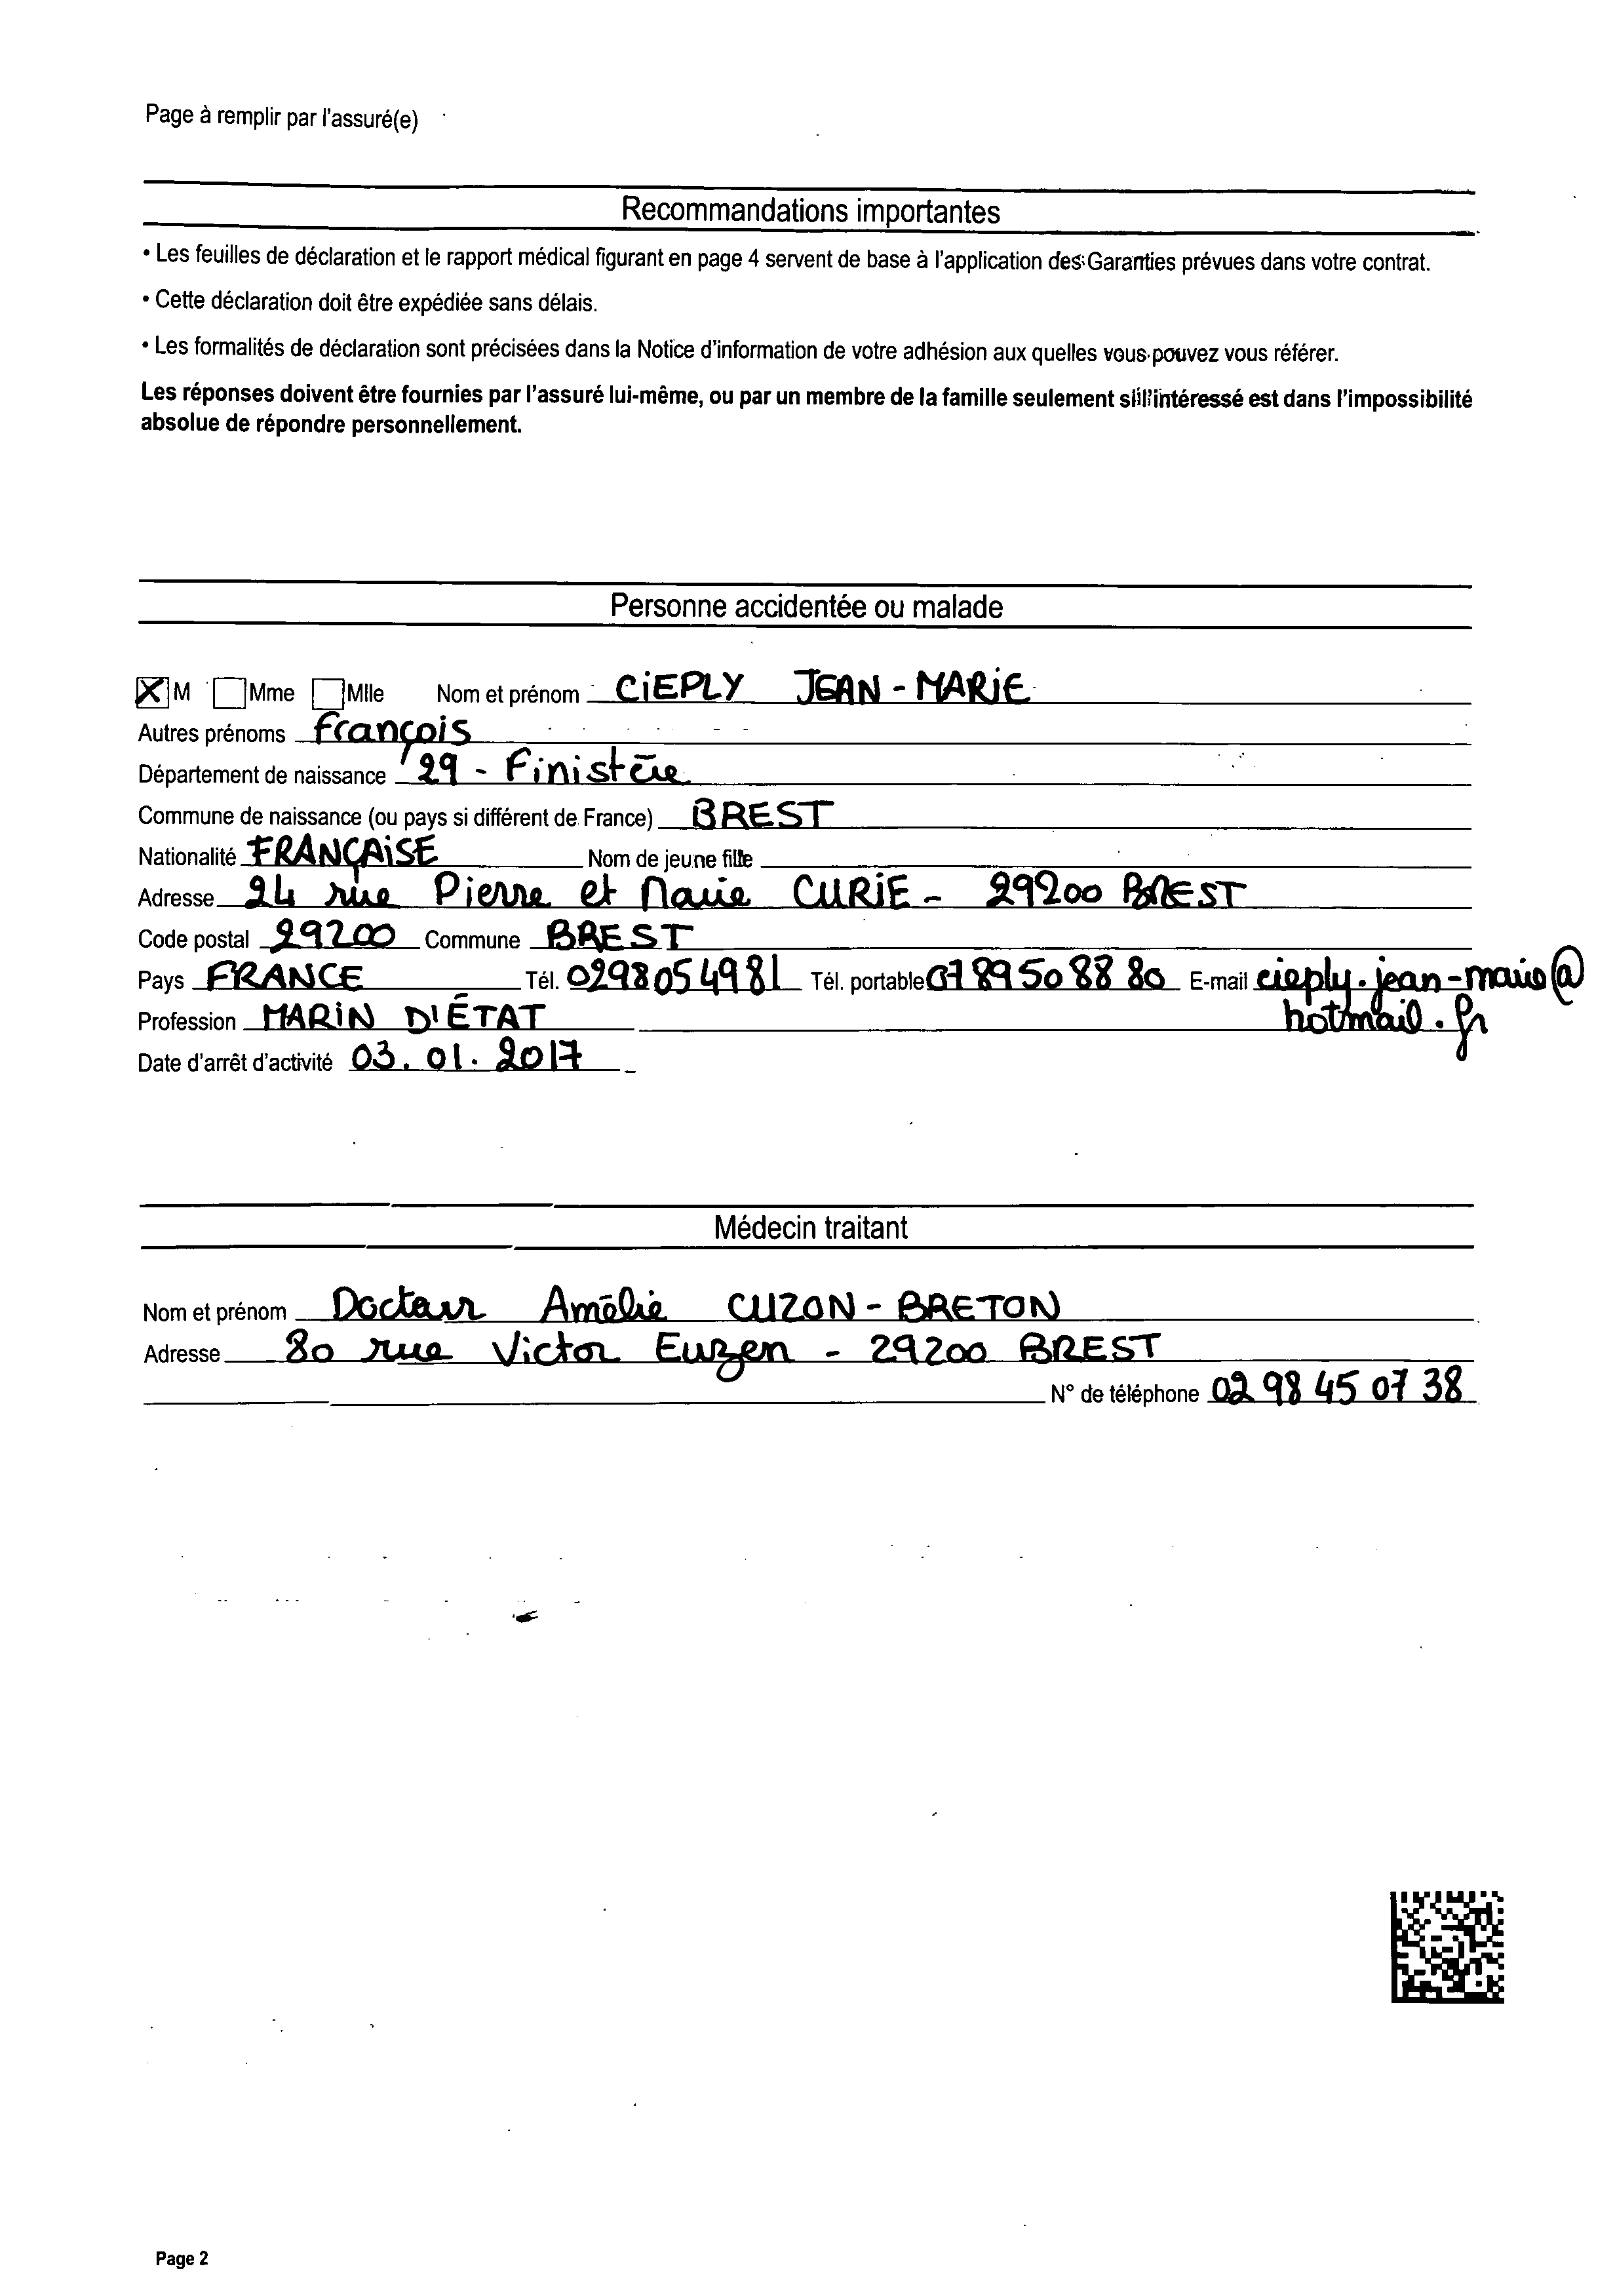 Page à remplir par l'assuré(e)
Recommandations importantes
• Les feuilles de déclaration et le rapport médical figurant en page 4 servent de base à l'application des Garanties prévues dans votre contrat.
• Cette déclaration doit être expédiée sans délais.
• Les formalités de déclaration sont précisées dans la Notice d'information de votre adhésion aux quelles vous pouvez vous référer.
Les réponses doivent être fournies par l'assuré lui-même, ou par un membre de la famille seulement si l'intéressé est dans l'impossibilité
absolue de répondre personnellement.
Personne accidentée ou malade
M Mme Mlle Nom et prénom CIEPLY JEAN-MARIE
Autres prénoms François
Département de naissance 29 - Finistère
Commune de naissance (ou pays si différent de France) BREST
Nationalité FRANÇAISE Nom de jeune fille
Adresse 24 rue Pierre et Marie CURIE - 29200 BREST
Code postal 29200 Commune BREST
Pays FRANCE Tél. 0298054981 Tél. portable 0789508880 E-mail cieply.jean-marie@
hotmail.fr
Profession MARIN D'ÉTAT
Date d'arrêt d'activité 03.01.2017
Médecin traitant
Nom et prénom Docteur Amélie CUZON-BRETON
Adresse 80 rue Victor Euzen - 29200 BREST
N° de téléphone 02 98 45 07 38
Page 2